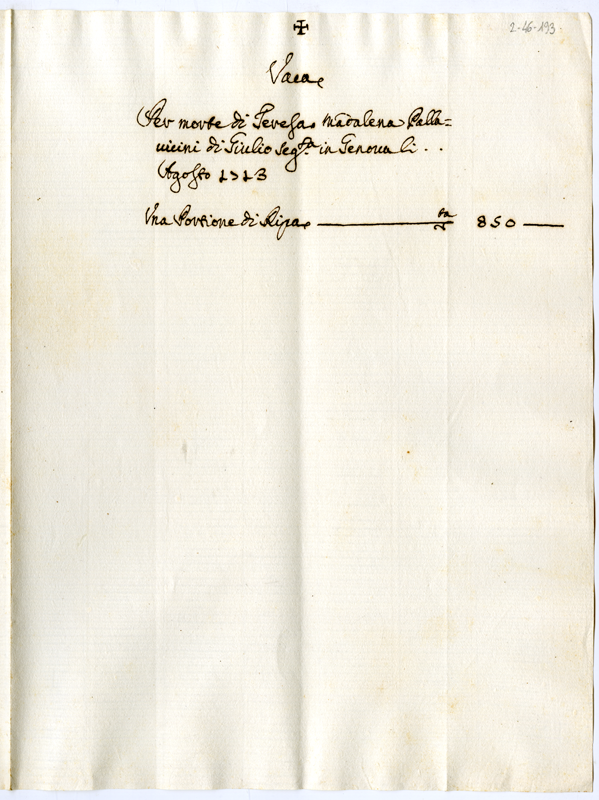 ✠
2-46-193
Vaca
Per morte di Teresa Madalena Palla=
uicini di Giulio seg.ta in Genoua li . .
Agosto 1713
Vna Portione di Ripa ta 850